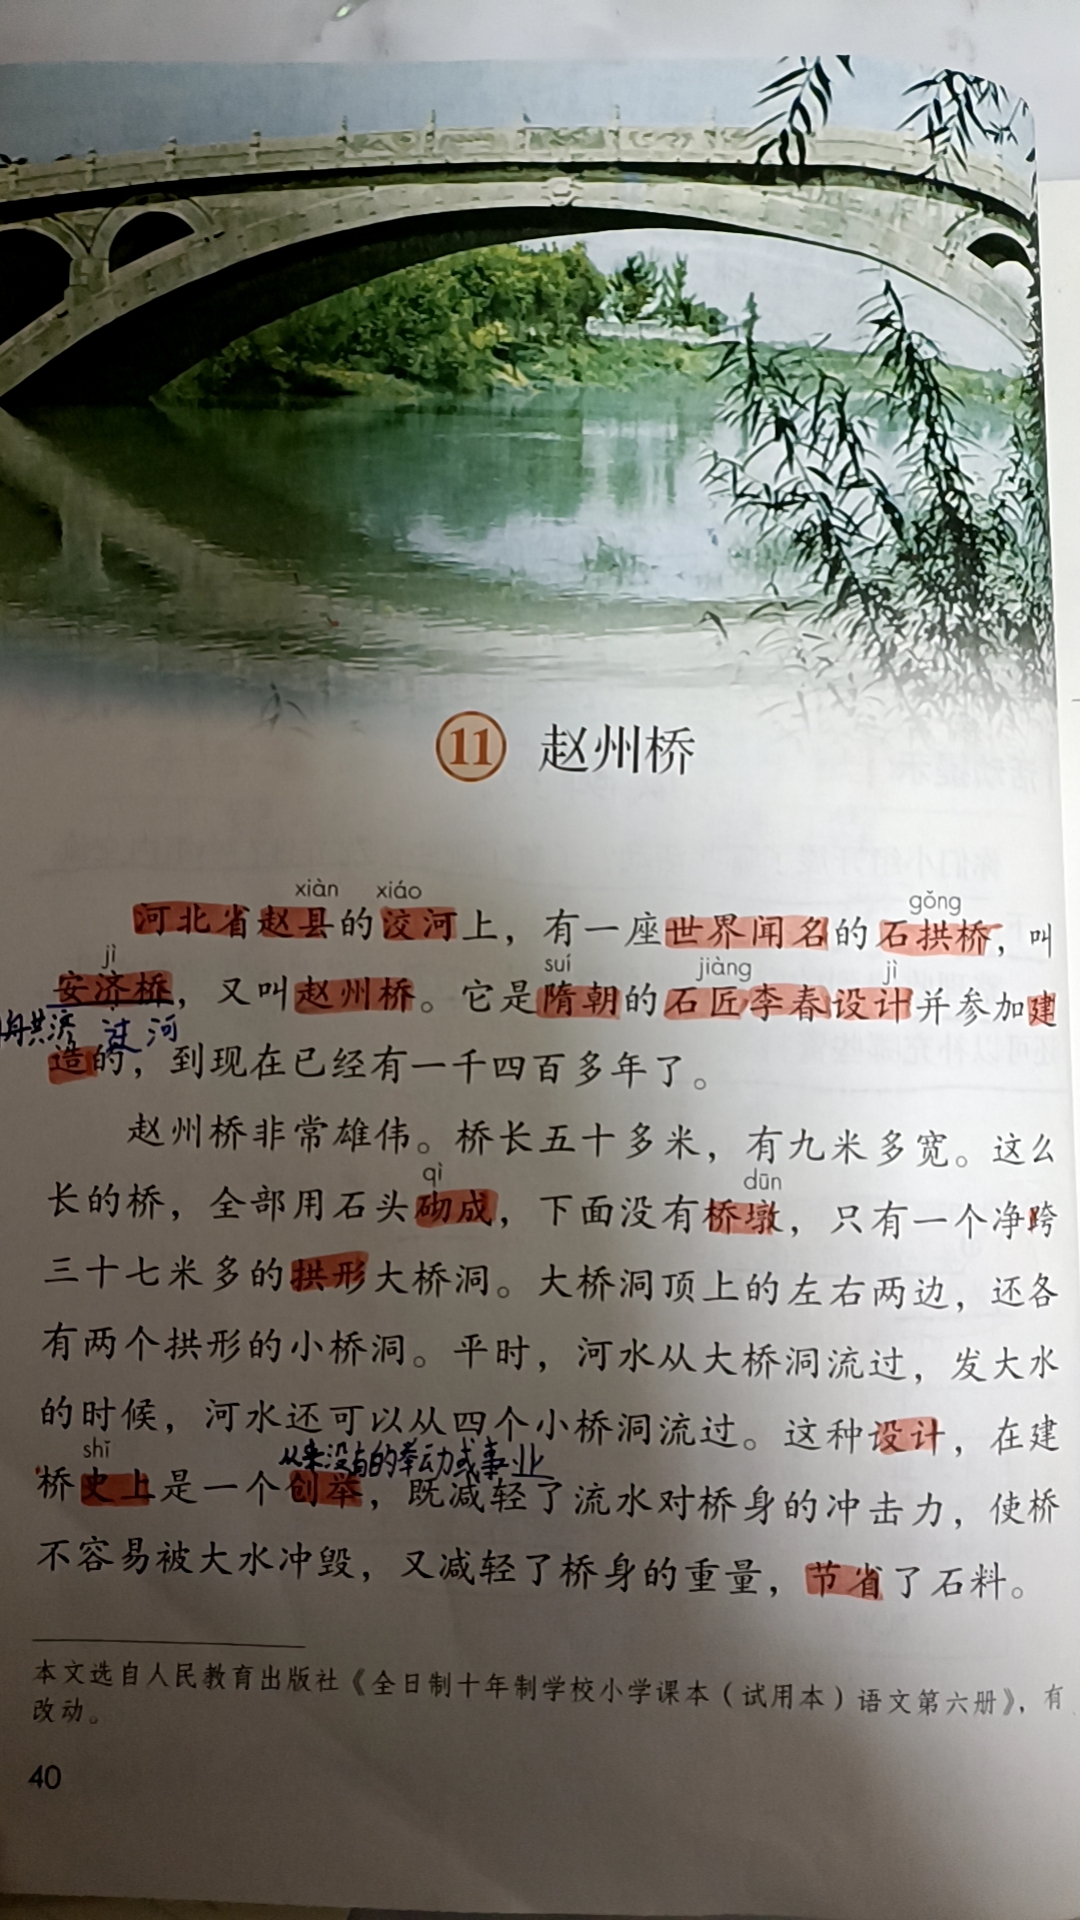 11 赵州桥
xiàn xiáo gǒng
河北省赵县的洨河上，有一座世界闻名的石拱桥，叫
jì suí jiàng jì
安济桥，又叫赵州桥。它是隋朝的石匠李春设计并参加建
舟共济 过河
造的，到现在已经有一千四百多年了。
赵州桥非常雄伟。桥长五十多米，有九米多宽。这么
qì dūn
长的桥，全部用石头砌成，下面没有桥墩，只有一个净跨
三十七米多的拱形大桥洞。大桥洞顶上的左右两边，还各
有两个拱形的小桥洞。平时，河水从大桥洞流过，发大水
的时候，河水还可以从四个小桥洞流过。这种设计，在建
shǐ 从来没有的举动或事业
桥史上是一个创举，既减轻了流水对桥身的冲击力，使桥
不容易被大水冲毁，又减轻了桥身的重量，节省了石料。
本文选自人民教育出版社《全日制十年制学校小学课本（试用本）语文第六册》，有
改动。
40